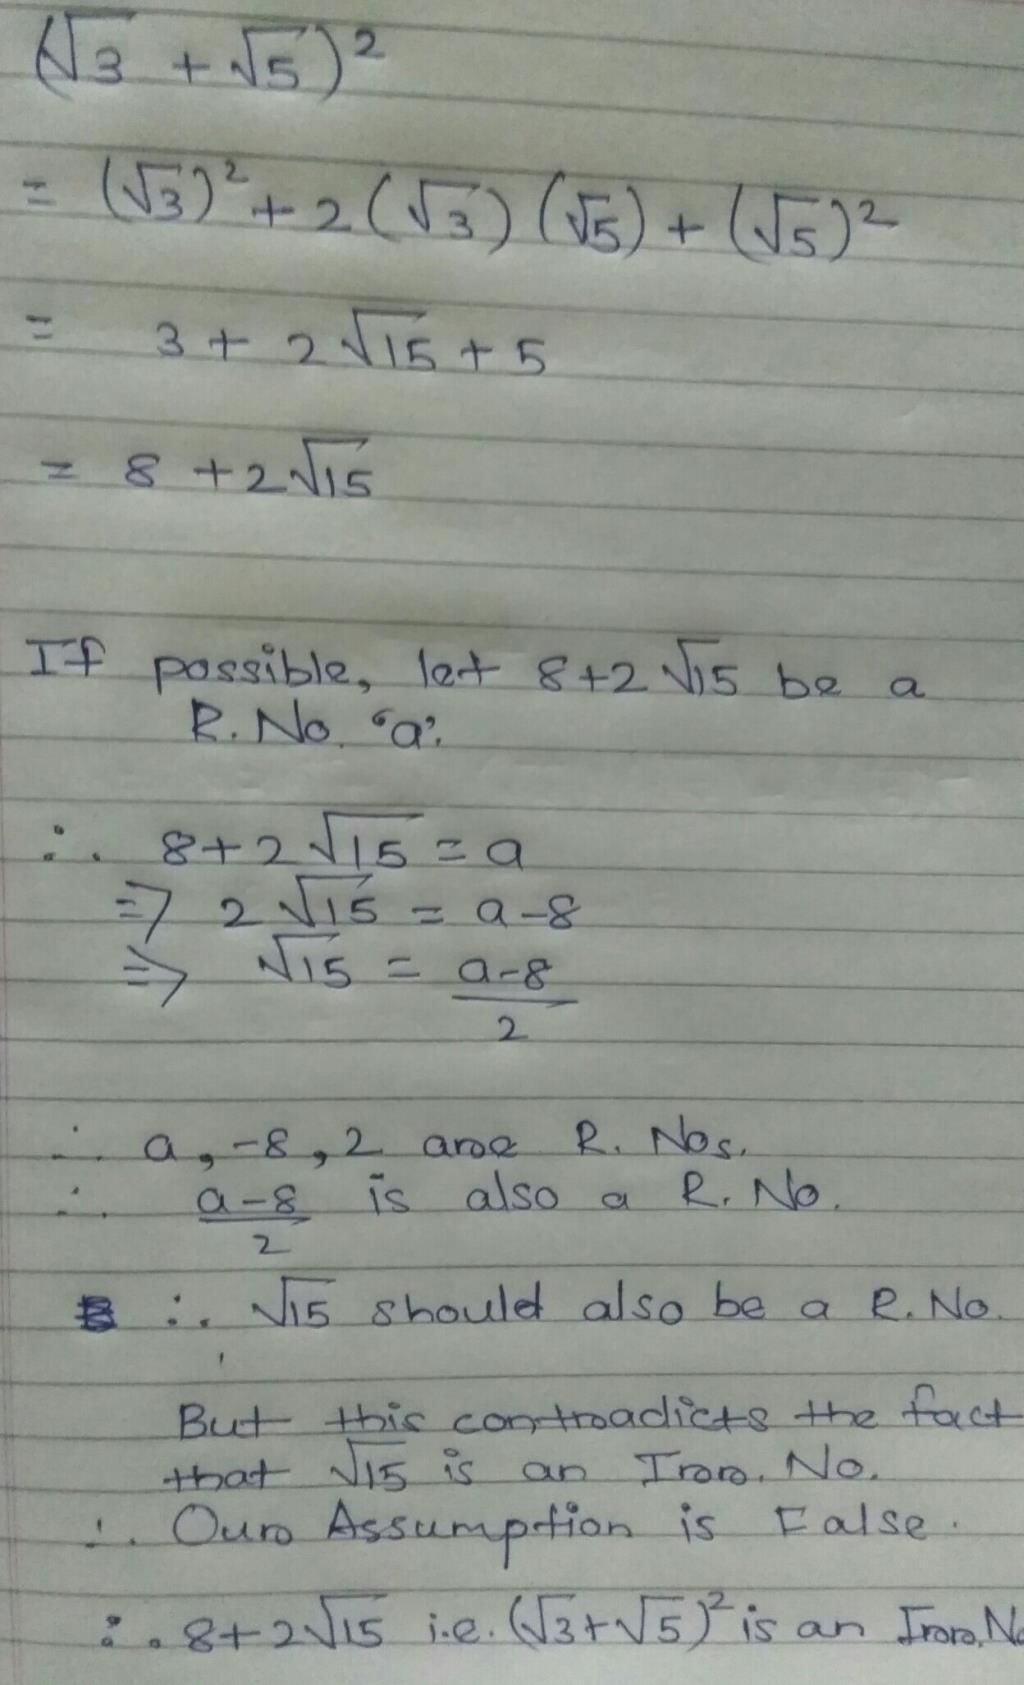 (√3 + √5)²
= (√3)² + 2(√3)(√5) + (√5)²
= 3 + 2√15 + 5
= 8 + 2√15
If possible, let 8+2√15 be a
R. No. ‘a’.
∴ 8+2√15 = a
⇒ 2√15 = a-8
⇒ √15 = a-8
2
∴ a, -8, 2 are R. Nos.
∴ a-8 is also a R. No.
2
∴ √15 should also be a R. No.
But this contradicts the fact
that √15 is an Irr. No.
∴ Our Assumption is False.
∴ 8+2√15 i.e. (√3+√5)² is an Irr. No